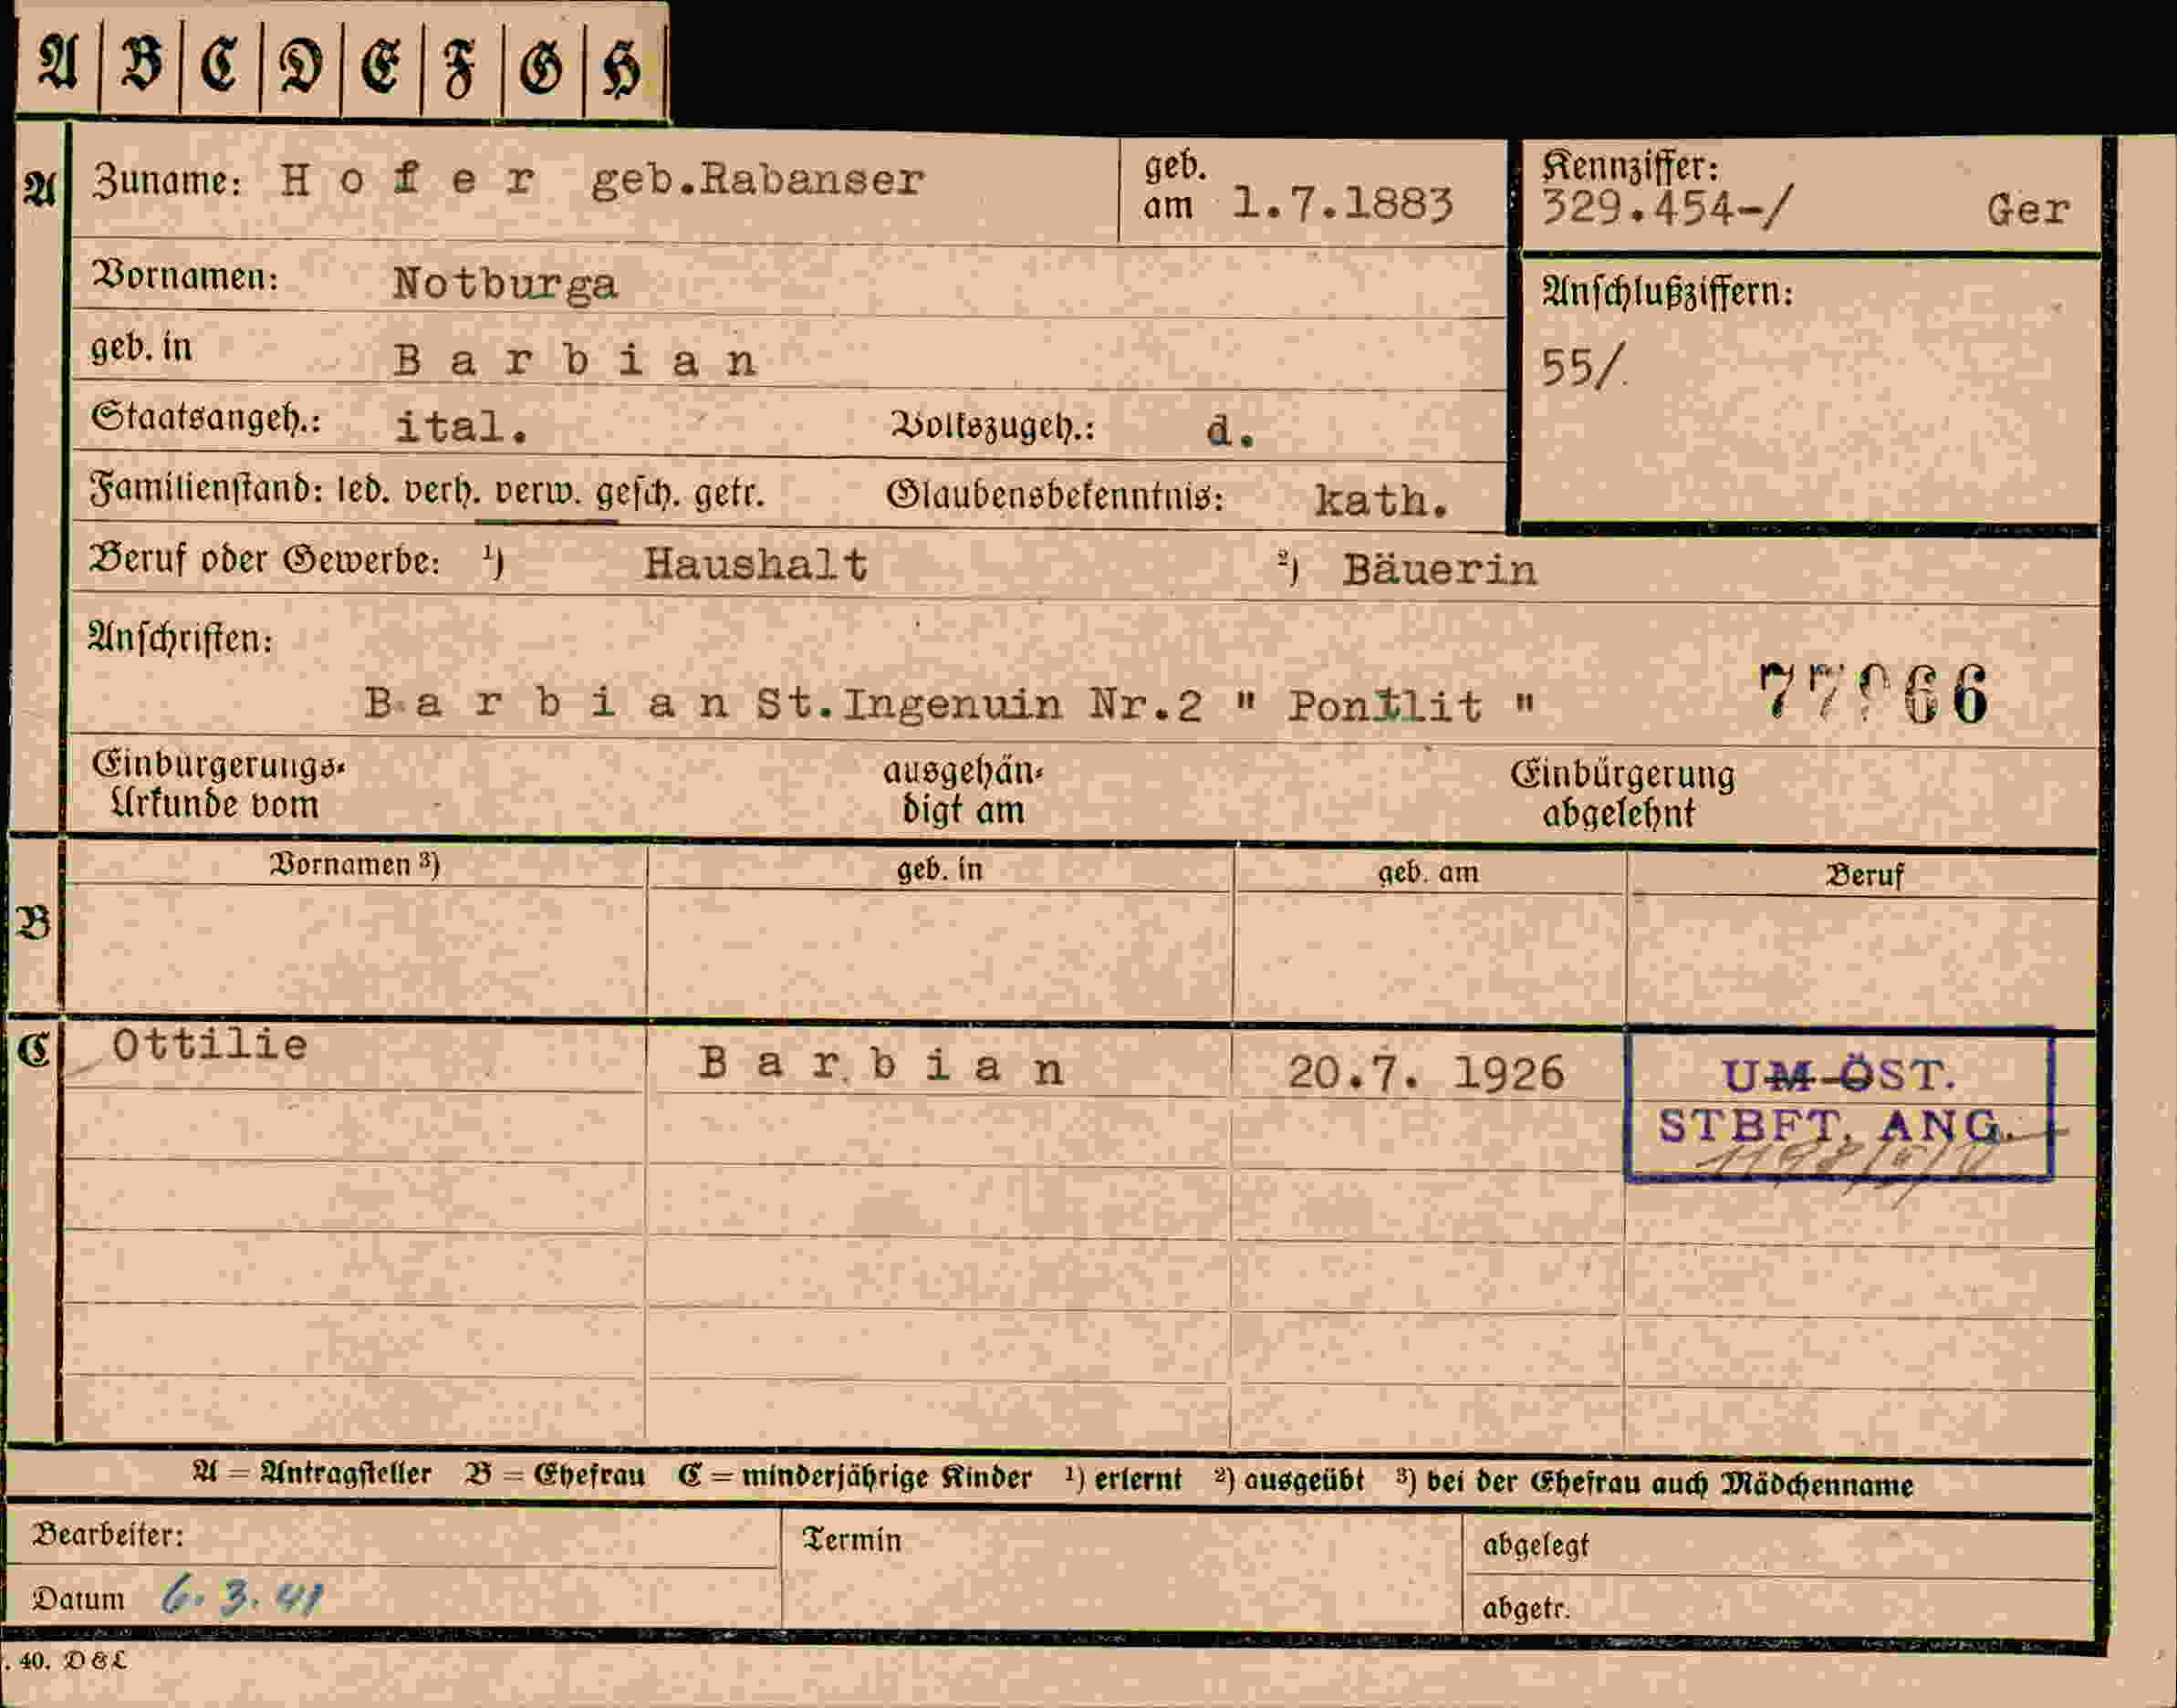 A B C D E F G H
A Zuname: H o f e r geb.Rabanser geb. am 1.7.1883 Kennziffer: 329.454-/ Ger
Vornamen: Notburga
Anschlußziffern:
geb. in B a r b i a n
55/.
Staatsangeh.: ital. Volkszugeh.: d.
Familienstand: led. verh. verw. gesch. getr. Glaubensbekenntnis: kath.
Beruf oder Gewerbe: ¹) Haushalt ²) Bäuerin
Anschriften:
B a r b i a n St.Ingenuin Nr.2 "            "
Einbürgerungs- ausgehän- Einbürgerung
Urkunde vom digt am abgelehnt
Vornamen ³) geb. in geb. am Beruf
B
C Ottilie B a r b i a n 20.7. 1926
UM-ÖST.
STBFT. ANG.
A = Antragsteller B = Ehefrau C = minderjährige Kinder ¹) erlernt ²) ausgeübt ³) bei der Ehefrau auch Mädchenname
Bearbeiter: Termin abgelegt
Datum 6.3.41 abgetr.
. 40. D & L